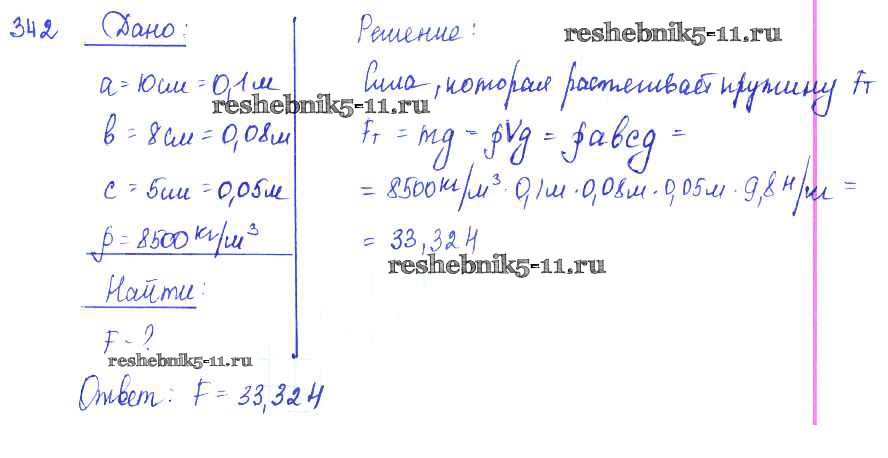 342 Дано:
a = 10 см = 0,1 м
в = 8 см = 0,08 м
c = 5 см = 0,05 м
ρ = 8500 кг/м³
Найти:
F - ?
Решение:
reshebnik5-11.ru
Сила, которая растягивает пружину Fт
reshebnik5-11.ru
Fт = mg = ρVg = ρ a b c g =
= 8500 кг/м³ · 0,1 м · 0,08 м · 0,05 м · 9,8 Н/м =
= 33,32 Н
reshebnik5-11.ru
reshebnik5-11.ru
Ответ: F = 33,32 Н